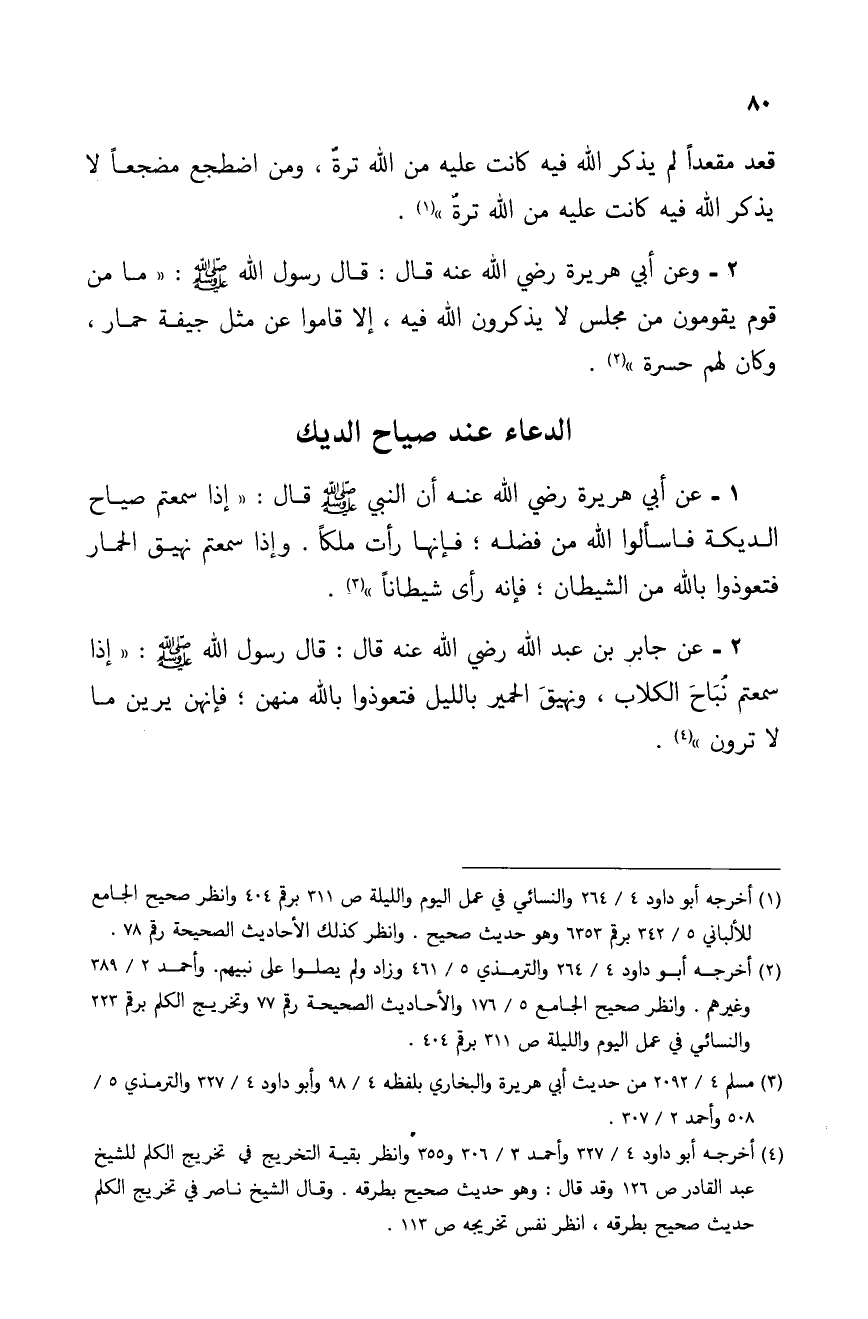 ٨٠
قعد مقعداً لم يذكر الله فيه كانت عليه من الله ترةٌ ، ومن اضطجع مضجعـاً لا
يذكر الله فيه كانت عليه من الله ترةٌ »(١) .
٢ ـ وعن أبي هريرة رضي الله عنه قـال : قـال رسول الله ﷺ : « مـا من
قوم يقومون من مجلس لا يذكرون الله فيه ، إلا قاموا عن مثل جيفـة حمـار ،
وكان لهم حسرة »(٢) .
الدعاء عند صياح الديك
١ ـ عن أبي هريرة رضي الله عنـه أن النبي ﷺ قـال : « إذا سمعتم صيـاح
الـديكـة فـاسـألوا الله من فضلـه ؛ فـإنهـا رأت ملكاً . وإذا سمعتم نهيـق الحمـار
فتعوذوا بالله من الشيطان ؛ فإنه رأى شيطاناً »(٣) .
٢ ـ عن جابر بن عبد الله رضي الله عنه قال : قال رسول الله ﷺ : « إذا
سمعتم نُبَاحَ الكلاب ، ونهيقَ الحمير بالليل فتعوذوا بالله منهن ؛ فإنهن يرين مـا
لا ترون »(٤) .
(١) أخرجه أبو داود ٤ / ٢٦٤ والنسائي في عمل اليوم والليلة ص ٣١١ برقم ٤٠٤ وانظر صحيح الجـامع
للألباني ٥ / ٣٤٢ برقم ٦٣٥٣ وهو حديث صحيح . وانظر كذلك الأحاديث الصحيحة رقم ٧٨ .
(٢) أخرجــه أبــو داود ٤ / ٢٦٤ والترمــذي ٥ / ٤٦١ وزاد ولم يصلــوا على نبيهم. وأحمــد ٢ / ٣٨٩
وغيرهم . وانظر صحيح الجـامـع ٥ / ١٧٦ والأحـاديث الصحيحـة رقم ٧٧ وتخريـج الكلم برقم ٢٢٣
والنسائي في عمل اليوم والليلة ص ٣١١ برقم ٤٠٤ .
(٣) مسلم ٤ / ٢٠٩٢ من حديث أبي هريرة والبخاري بلفظه ٤ / ٩٨ وأبو داود ٤ / ٣٢٧ والترمـذي ٥ /
٥٠٨ وأحمد ٢ / ٣٠٧ .
(٤) أخرجـه أبو داود ٤ / ٣٢٧ وأحمـد ٣ / ٣٠٦ و٣٥٥ وانظر بقيـة التخريج في تخريج الكلم للشيخ
عبد القادر ص ١٢٦ وقد قال : وهو حديث صحيح بطرقه . وقـال الشيخ نـاصر في تخريج الكلم
حديث صحيح بطرقه ، انظر نفس تخريجه ص ١١٣ .